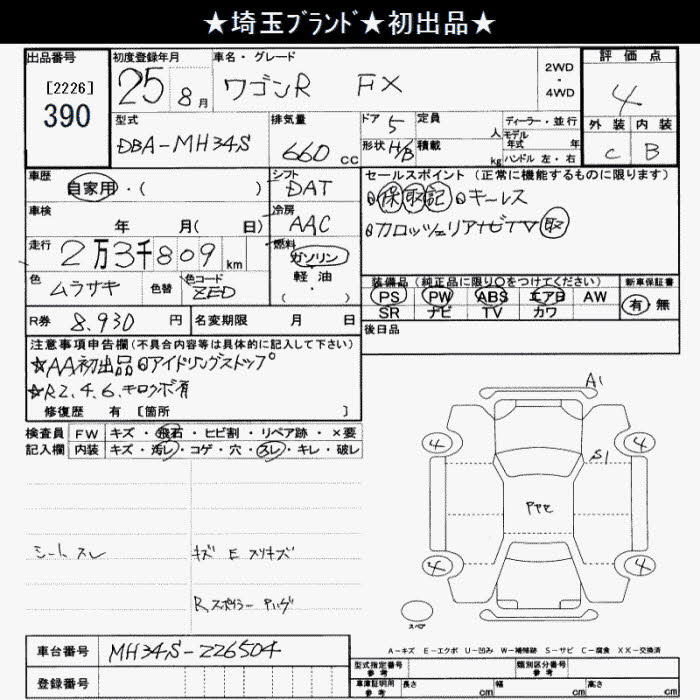 ★埼玉ﾌﾞﾗﾝﾄﾞ★初出品★
出品番号
[2226]
390
初度登録年月
25 8月
車名・グレード
ワゴンR FX
2WD
・
4WD
評価点
4
外装 内装
C B
型式
DBA-MH34S
排気量
660 CC
ドア 5
形状 H/B
定員 人
積載 kg
ディーラー・並行
モデル
年式 年
ハンドル 左・右
車歴
自家用・( )
シフト
DAT
車検
年 月( 日)
冷房
AAC
走行
2万3千809 km
燃料
ガソリン
軽・油
・( )
色
ムラサキ
色替
色コード
ZED
セールスポイント (正常に機能するものに限ります)
保 取 記 キーレス
カロッツェリアナビTV 取
装備品 (純正品に限り○をつけてください)
PS PW ABS エアB AW
SR ナビ TV カワ
新車保証書
有 無
R券 8,930 円
名変期限 月 日
後日品
注意事項申告欄(不具合内容等は具体的に記入して下さい)
☆AA初出品 アイドリングストップ
☆R2.4.6.キロクボ有
修復歴 有 [箇所 ]
検査員 FW キズ・飛石・ヒビ割・リペア跡・×要
記入欄 内装 キズ・汚レ・コゲ・穴・スレ・キレ・破レ
シート スレ
キズ E スリキズ
Rスポイラー
A1
4 4
S1
4 4
スペア
A-キズ E-エクボ U-凹み W-補修跡 S-サビ C-腐食 XX-交換済
車台番号 MH34S-226504
登録番号
型式指定番号
参考
類別区分番号
参考
車庫証明用
参考
長さ cm 幅 cm 高さ cm